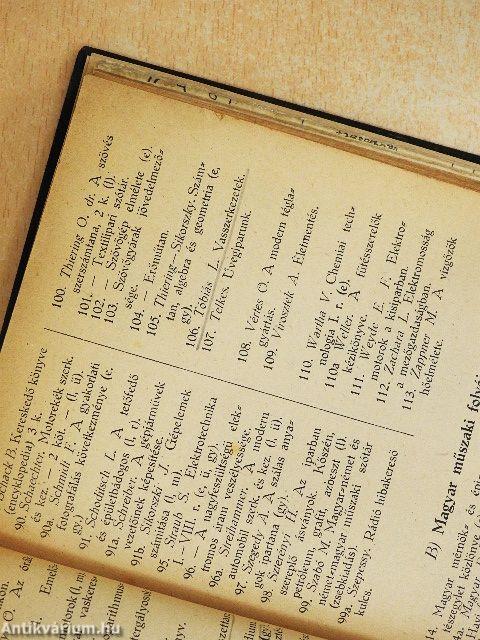 Schack B. Kereskedő könyve
(encyklopedia) 3 k.
90. Schlechter, Moterekék szerk.
és kez. — 2 köt. — (l, ü).
90a. Schmidt F. A gyakorlati
fotografálás következménye (e,
gy).
91. Schoditsch L. A tetőfedő
és épületbádogos (l, r).
91a. Schreiber. A gépjárművek
vezetőinek kiképesítése.
91b. Sikorszki J. Gépelemek
számítása (l, m).
95. Straub S. Elektrotechnika
I.—VIII. r. (e, ü, gy).
96. — A nagyfeszültségű elek-
tromos áram veszélyessége.
96a. Streihammer, A modern
automobil szerk. és kez. (l, ü)
97. Szegedy A. A szálas anya-
gok ipartana (gy).
98. Szerényi H. Az iparban
szereplő ásványok. Kőszén,
petróleum, grafit, azbeszt (l).
99. Szabó M. Magyar-német és
német-magyar műszaki szótár
(zsebkiadás)
99a. Szepessy. Rádió hibakereső
kulcs.
100. Thiering O. dr. A szövés
szerszámtana, 2 k. (l).
101. — Textilipari szótár.
102. — Szövőgép elmélete (e).
103. — Szövőgyárak jövedelmező-
sége.
104. — Erőműtan.
105. Thiering—Sikorszky: Szám-
tan, algebra és geometria (e,
gy).
106. Tóbiás L. Vasszerkezetek.
107. Telkes. Üvegiparunk.
108. Vértes O. A modern tégla-
gyártás.
109. Virosztek A. Életmentés.
110. Wartha V. Chemiai tech-
nologia I. r. (e).
110a. Weiller. A fűtésszerelők
kézikönyve.
111. Weyde E. F. Elektro-
motorok a kisiparban.
112. Zachara. Elektromosság
a mezőgazdaságban.
113. Zappner M. A vízgőzök
hőelmélete.
B) Magyar műszaki
Magyar mérnök- és épí-
tészegylet közlönye
Antikvárium.hu